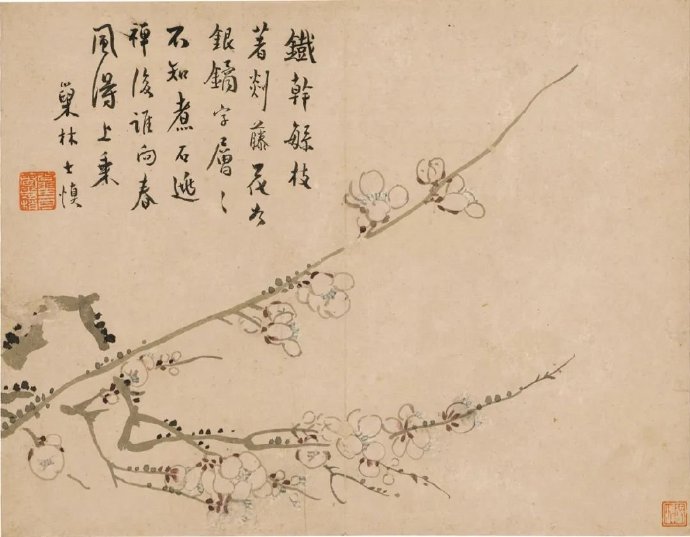 鐵幹緐枝
著剡藤花
銀鏑字層〻
不知煮石逃
禪後誰向春
風得上乘
巢林士慎